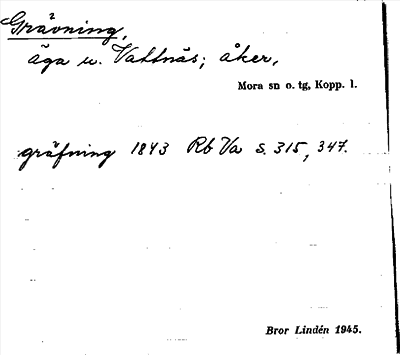 Grävning,
äga u. Vattnäs; åker,
Mora sn o. tg, Kopp. l.
gräfning 1843 Rb Va s. 315, 347.
Bror Lindén 1945.